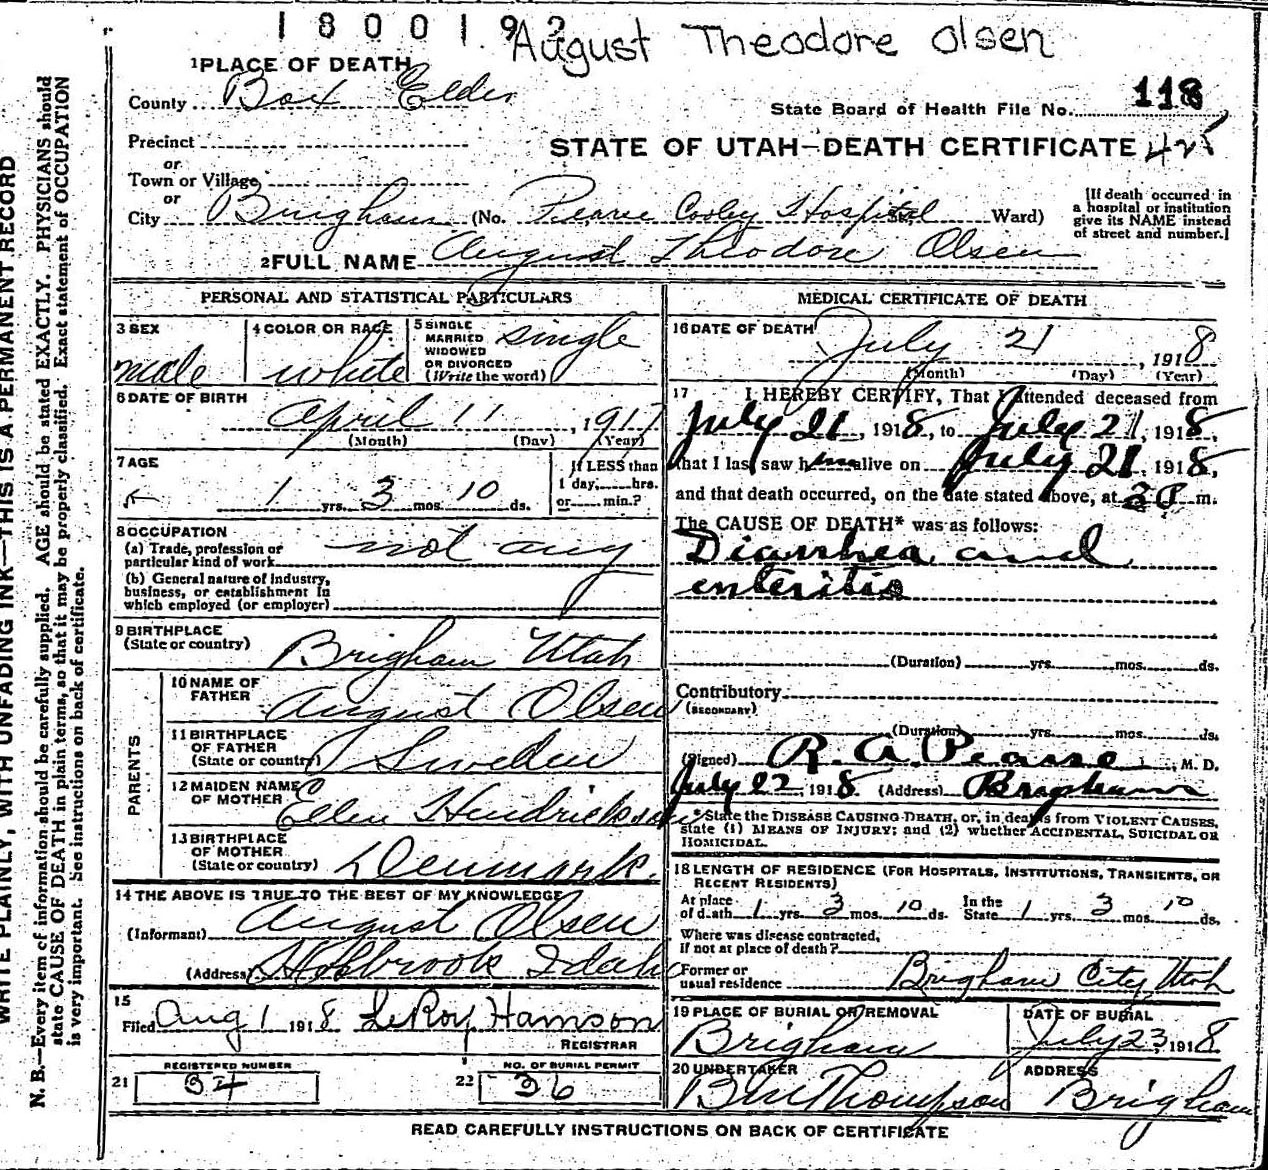 1800192
August Theodore Olsen
1 PLACE OF DEATH
County Box Elder
State Board of Health File No. 118
Precinct
or
STATE OF UTAH—DEATH CERTIFICATE 425
Town or Village
or
City Brigham (No. Pearse Cooley Hospital Ward)
[If death occurred in a hospital or institution give its NAME instead of street and number.]
2 FULL NAME August Theodore Olsen
PERSONAL AND STATISTICAL PARTICULARS
3 SEX male
4 COLOR OR RACE white
5 SINGLE MARRIED WIDOWED OR DIVORCED (Write the word) single
6 DATE OF BIRTH
April 11, 1917
(Month) (Day) (Year)
7 AGE
1 yrs. 3 mos. 10 ds.
If LESS than 1 day, hrs. or min.?
8 OCCUPATION
(a) Trade, profession or particular kind of work not any
(b) General nature of industry, business, or establishment in which employed (or employer)
9 BIRTHPLACE
(State or country) Brigham Utah
PARENTS
10 NAME OF FATHER August Olsen
11 BIRTHPLACE OF FATHER (State or country) Sweden
12 MAIDEN NAME OF MOTHER Ellen Hendrickson
13 BIRTHPLACE OF MOTHER (State or country) Denmark.
14 THE ABOVE IS TRUE TO THE BEST OF MY KNOWLEDGE
(Informant) August Olsen
(Address) Holbrook Idaho
15
Filed Aug 1 1918 LeRoy Hamson
REGISTRAR
REGISTERED NUMBER
21 34
NO. OF BURIAL PERMIT
22 36
MEDICAL CERTIFICATE OF DEATH
16 DATE OF DEATH July 21, 1918
(Month) (Day) (Year)
17 I HEREBY CERTIFY, That I attended deceased from
July 21, 1918, to July 21, 1918,
that I last saw him alive on July 21, 1918,
and that death occurred, on the date stated above, at m.
The CAUSE OF DEATH* was as follows:
Diarrhea and
enteritis
(Duration) yrs. mos. ds.
Contributory
(SECONDARY)
(Duration) yrs. mos. ds.
(Signed) R. A. Pearse, M. D.
July 22, 1918 (Address) Brigham
*State the DISEASE CAUSING DEATH, or, in deaths from VIOLENT CAUSES,
state (1) MEANS OF INJURY; and (2) whether ACCIDENTAL, SUICIDAL OR
HOMICIDAL.
18 LENGTH OF RESIDENCE (FOR HOSPITALS, INSTITUTIONS, TRANSIENTS, OR
RECENT RESIDENTS)
At place of death 1 yrs. 3 mos. 10 ds. In the State 1 yrs. 3 mos. 10 ds.
Where was disease contracted, if not at place of death?
Former or usual residence Brigham City, Utah
19 PLACE OF BURIAL OR REMOVAL
Brigham
DATE OF BURIAL
July 23, 1918
20 UNDERTAKER
Thompson
ADDRESS
Brigham
READ CAREFULLY INSTRUCTIONS ON BACK OF CERTIFICATE
WRITE PLAINLY, WITH UNFADING INK—THIS IS A PERMANENT RECORD
N. B.—Every item of information should be carefully supplied. AGE should be stated EXACTLY. PHYSICIANS should
state CAUSE OF DEATH in plain terms, so that it may be properly classified. Exact statement of OCCUPATION
is very important. See instructions on back of certificate.